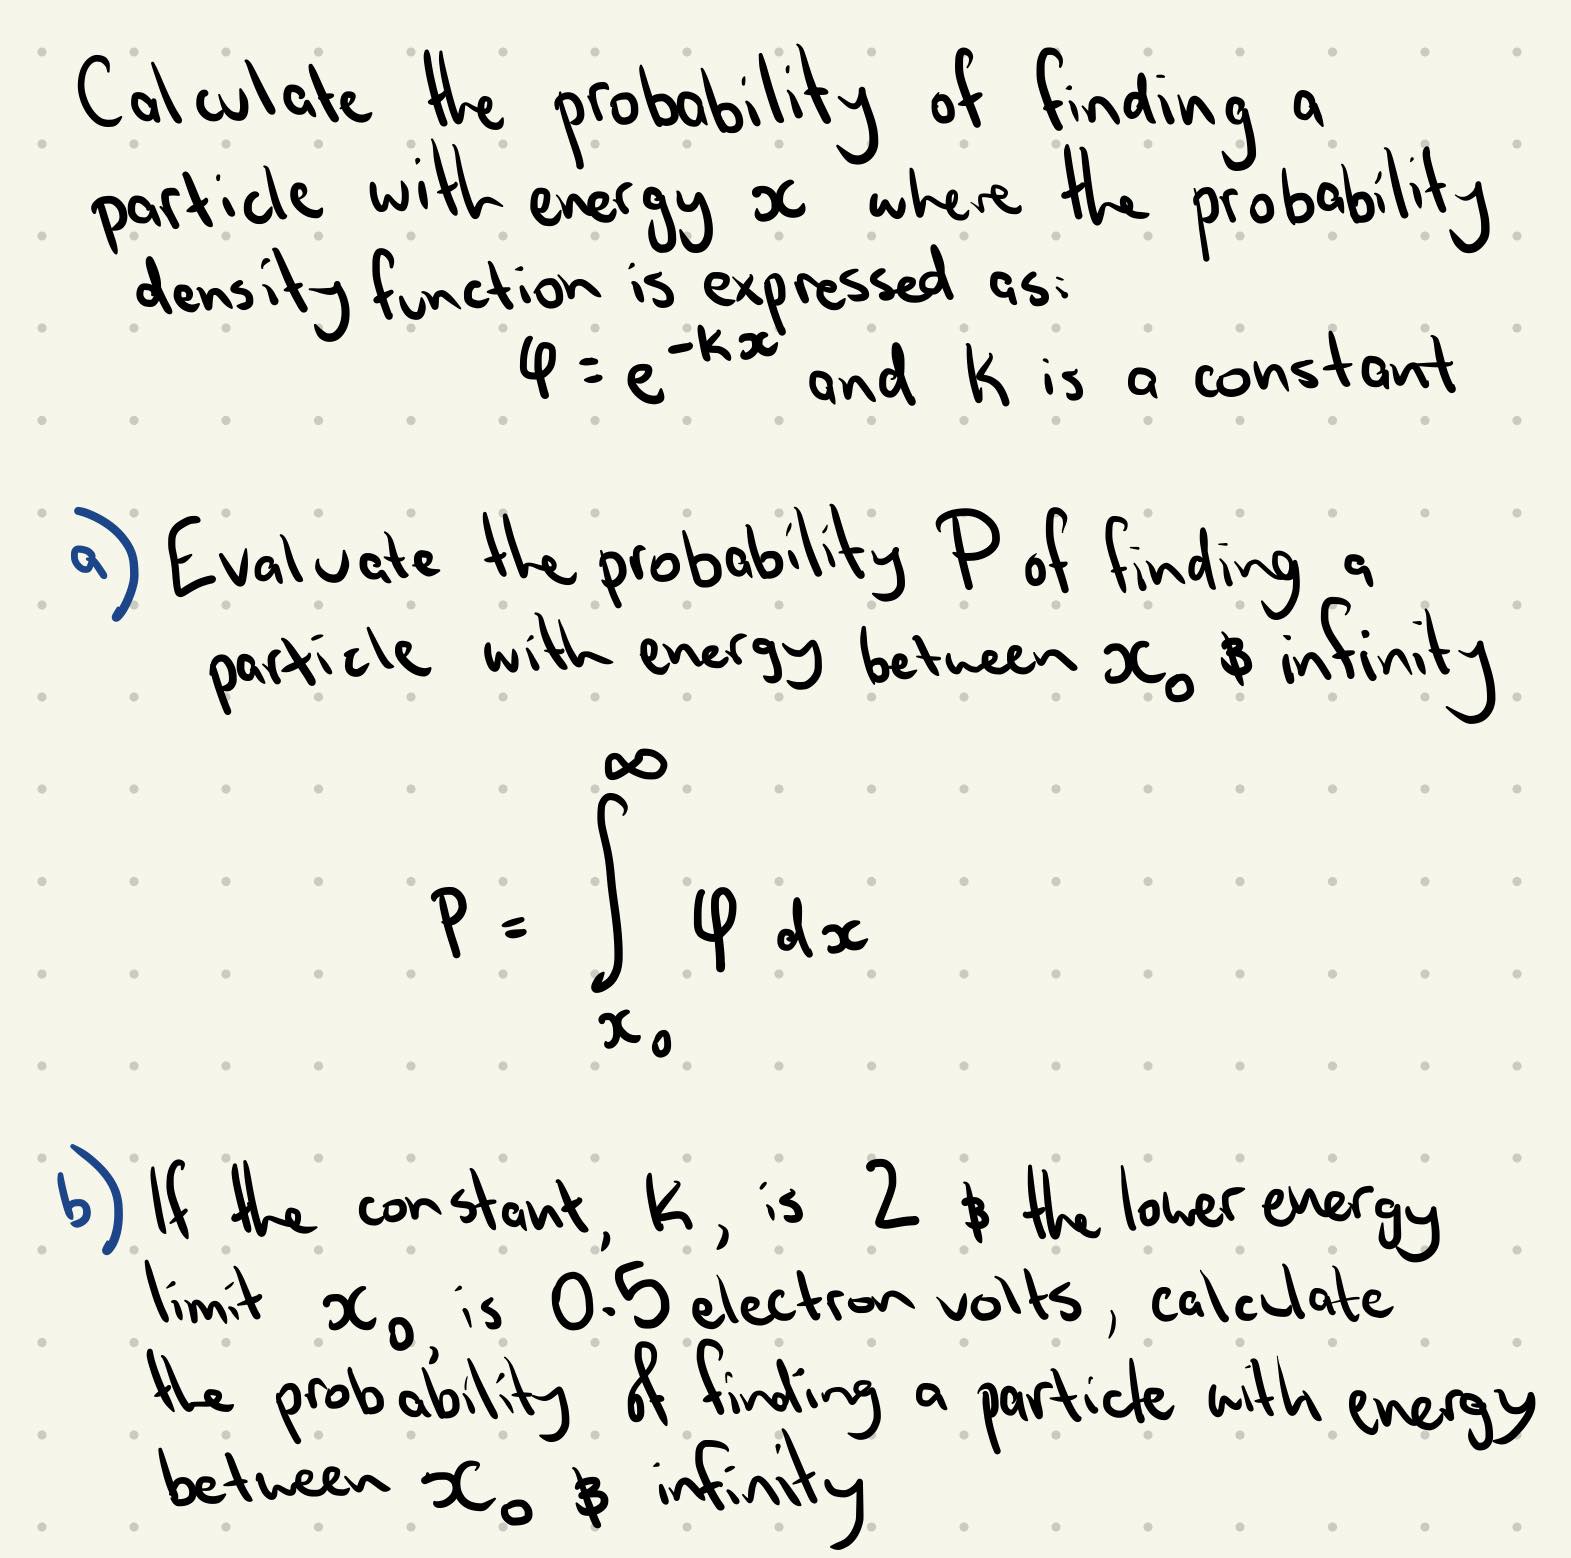 Calculate the probability of finding a
particle with energy x where the probability
density function is expressed as:
φ = e^-kx and k is a constant
a) Evaluate the probability P of finding a
particle with energy between x₀ & infinity
∞
P = ∫ φ dx
x₀
b) If the constant, k, is 2 & the lower energy
limit x₀, is 0.5 electron volts, calculate
the probability of finding a particle with energy
between x₀ & infinity